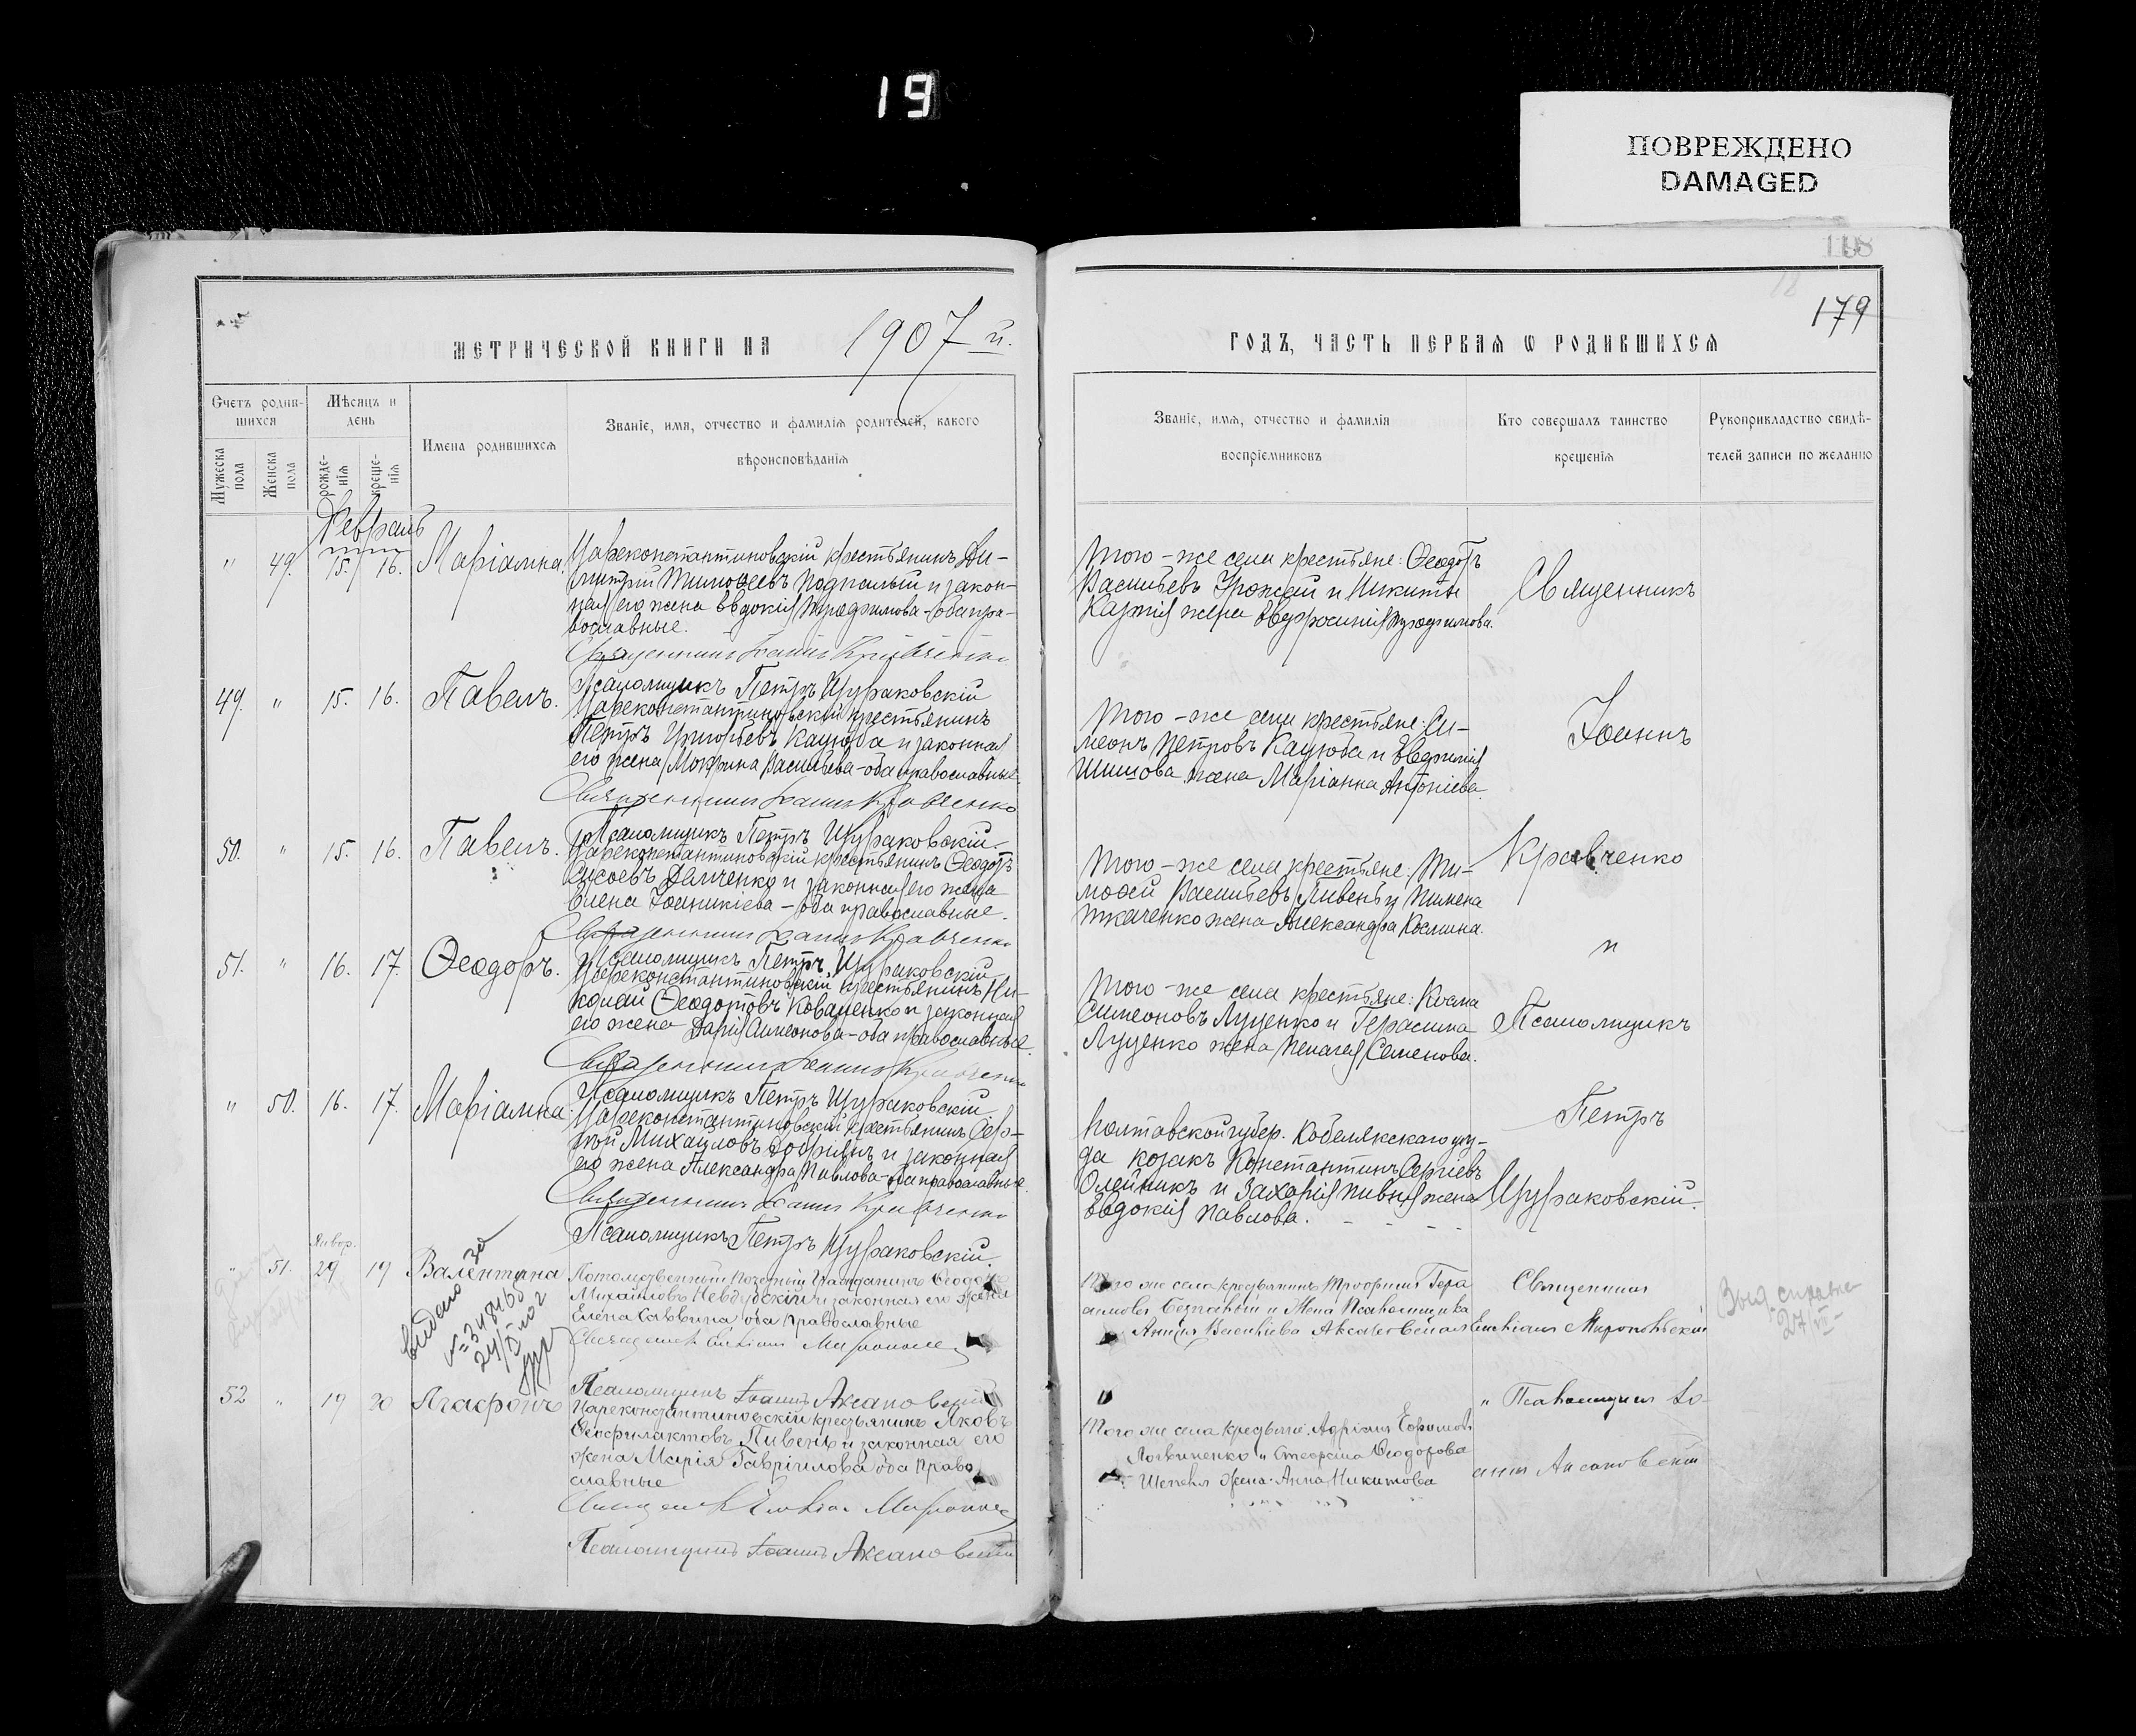 19
ПОВРЕЖДЕНО
DAMAGED
198
179
МЕТРИЧЕСКОЙ КНИГИ НА 1907 й.
ГОДЪ, ЧАСТЬ ПЕРВАЯ Ѡ РОДИВШИХСЯ
Счетъ родив-
шихся
Мѣсяцъ и
день
Мужеска
пола
Женска
пола
рожде-
нія
креще-
нія
Имена родившихся
Званіе, имя, отчество и фамилія родителей, какого
вѣроисповѣданія
Званіе, имя, отчество и фамилія
воспріемниковъ
Кто совершалъ таинство
крещенія
Рукоприкладство свидѣ-
телей записи по желанію
Февраль
" 49. 15. 16. Маріамна.
Цареконстантиновскій крестьянинъ Ди-
митрій Тимоѳеевъ Подпалый и закон-
ная его жена Евдокія Трофимова - оба пра-
вославные.
Священникъ Іоаннъ Кравченко
Псаломщикъ Петръ Щураковскій
Того-же села крестьяне: Ѳеодотъ
Васильевъ и Никиты
жена Евфросинія Трофимова.
49. " 15. 16. Павелъ.
Цареконстантиновскій крестьянинъ
Петръ Григорьевъ Кацюба и законная
его жена Мокрина Васильева - оба православные.
Священникъ Іоаннъ Кравченко
Псаломщикъ Петръ Щураковскій
Того-же села крестьяне: Си-
меонъ Петровъ Кацюба и
жена Маріанна Антоніева.
50. " 15. 16. Павелъ.
Цареконстантиновскій крестьянинъ Ѳеодотъ
Сисоевъ Демченко и законная его жена
Елена Іоанникіева - оба православные.
Священникъ Іоаннъ Кравченко
Псаломщикъ Петръ Щураковскій
Того-же села крестьяне: Ти-
моѳей Васильевъ Пивень и Пимена
Ткаченко жена Александра Космина.
51. " 16. 17. Ѳеодоръ.
Цареконстантиновскій крестьянинъ Ни-
колай Ѳеодотовъ Коваленко и законная
его жена Дарія Симеонова - оба православные.
Священникъ Іоаннъ Кравченко
Псаломщикъ Петръ Щураковскій
Того-же села крестьяне: Косма
Симеоновъ Луценко и Герасима
Луценко жена Пелагея Семенова.
" 50. 16. 17. Маріамна.
Цареконстантиновскій крестьянинъ Сер-
гій Михайловъ и законная
его жена Александра Павлова - оба православные.
Священникъ Іоаннъ Кравченко
Псаломщикъ Петръ Щураковскій.
Полтавской губер. Кобелякскаго уѣз-
да козакъ Константинъ Сергіевъ
Олейникъ и Захарія Пивня жена
Евдокія Павлова.
Священникъ
Іоаннъ
Кравченко
и
Псаломщикъ
Петръ
Щураковскій.
Январ.
" 51. 29 19 Валентина
Потомственный Почетный Гражданинъ Ѳеодоръ
Михайловъ и законная его жена
Елена Саввична оба Православные
Псаломщикъ Іоаннъ Аксановскій
Того же села крестьянинъ Трофимъ Гера
симовъ и жена Псаломщика
Анна Васильева
Священникъ
Выд. справка
27
выдано за
№ 348465
52 " 19 20 Агафонъ
Цареконстантиновскій крестьянинъ Яковъ
Ѳеофилактовъ Пивень и законная его
жена Марія Гавріилова оба Право
славные
Псаломщикъ Іоаннъ Аксановскій
Того же села крестьяне: Адріанъ Ефимовъ
Логвиненко и Ѳеодорова
жена Анна Никитова
" Псаломщикъ Іо-
аннъ Аксановскій